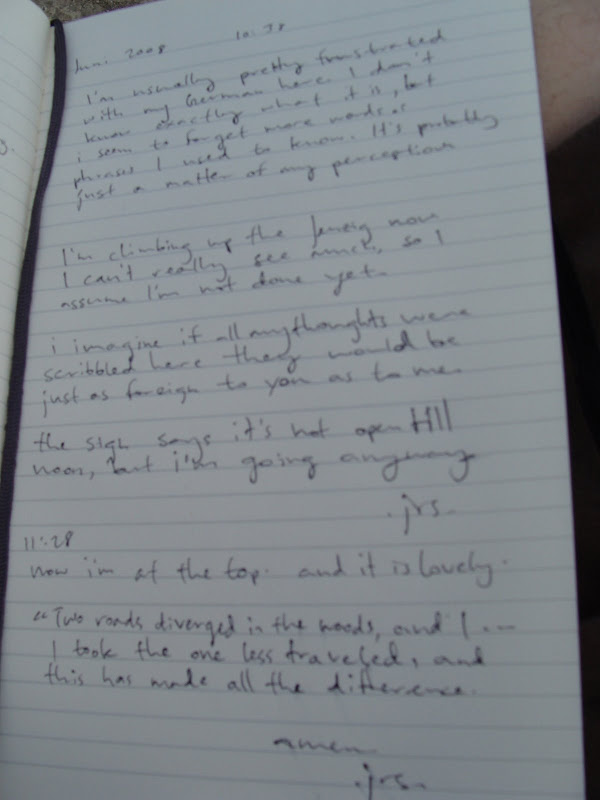 Juni 2008 10:38
I'm usually pretty frustrated
with my German here. I don't
know exactly what it is, but
i seem to forget more words or
phrases I used to know. It's probably
just a matter of my perception
I'm climbing up the now
I can't really see much, so I
assume I'm not done yet.
i imagine if all my thoughts were
scribbled here they would be
just as foreign to you as to me.
the sign says it's not open till
noon, but i'm going anyway
.jrs.
11:28
now i'm at the top. and it is lovely.
"Two roads diverged in the woods, and I --
I took the one less traveled, and
this has made all the difference.
amen
.jrs.